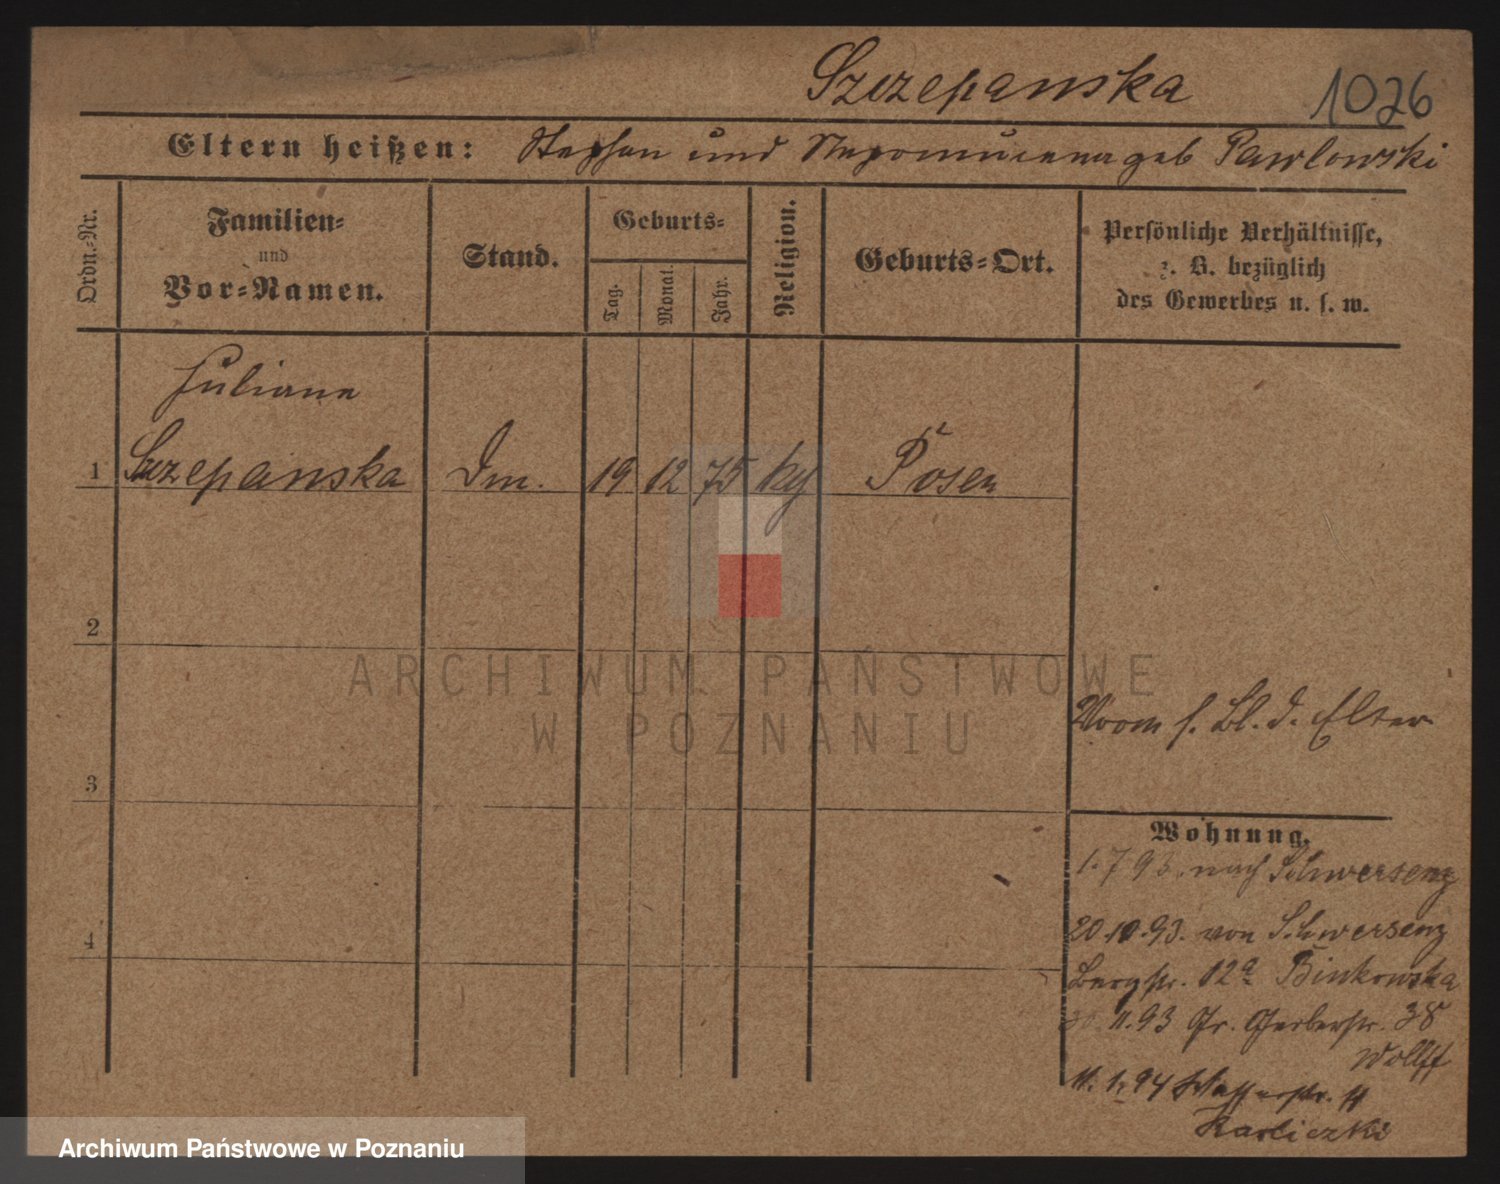 Szczepanska 1026
Eltern heißen: Stephan und Nepomucena geb Pawlowski
Ordn.-Nr.
Familien-
und
Vor-Namen.
Stand.
Geburts-
Tag.
Monat.
Jahr.
Religion.
Geburts-Ort.
Persönliche Verhältnisse,
z. B. bezüglich
des Gewerbes u. s. w.
Juliana
1 Szczepanska Dm. 19 12 75 kg Posen
2
ARCHIWUM PAŃSTWOWE
W POZNANIU
s. Bl. d. Elter
3
Wohnung.
1. 7 93. nach Schwersenz
20.10.93. von Schwersenz
Bergstr. 12a Binkowska
11.93 Gr. Gerberstr. 38
Wolff
11. 1. 94 Wasserstr.
Karliczki
4
Archiwum Państwowe w Poznaniu